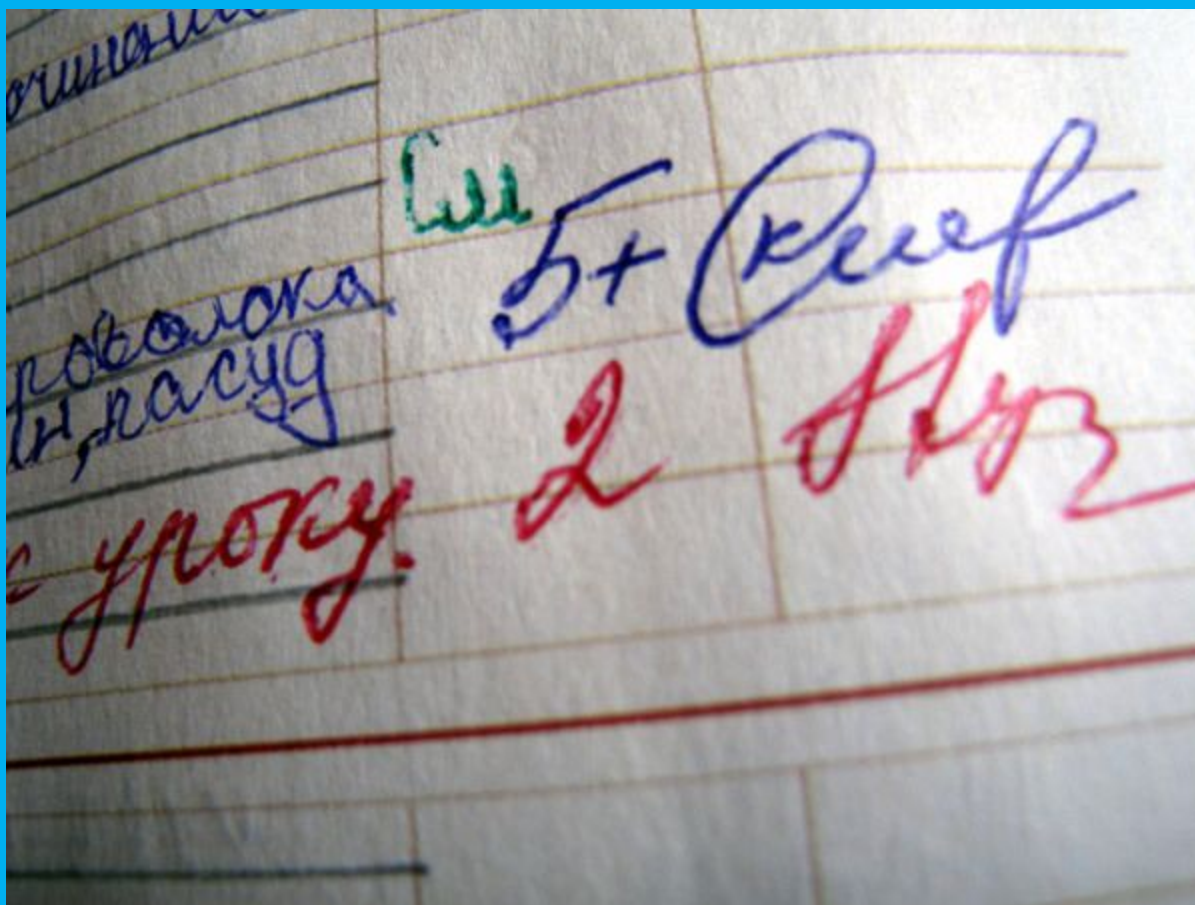 очинени
См
5+
роволока
н, пасуд
к уроку. 2